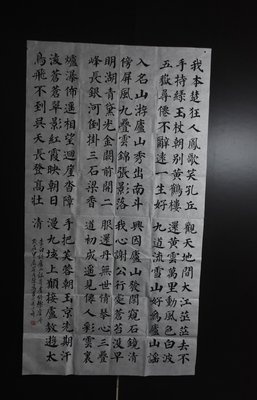 我本楚狂人鳳歌笑孔丘
手持綠玉杖朝別黃鶴樓
五嶽尋僊不辭遠一生好
入名山遊廬山秀出南斗
傍屏風九疊雲錦張影落
明湖青黛光金闕前開二
峰長銀河倒掛三石梁香
爐瀑布遙相望迴崖沓障
淩蒼蒼翠影紅霞映朝日
鳥飛不到吳天長登高壯
觀天地間大江茫茫去不
還黃雲萬里動風色白波
九道流雪山好為廬山謠
興因廬山發閒窺石鏡清
我心謝公行處蒼苔沒早
服還丹無世情琴心三疊
道初成遙見僊人彩雲裏
手把芙蓉朝玉京先期汗
漫九垓上願接盧敖遊太
清